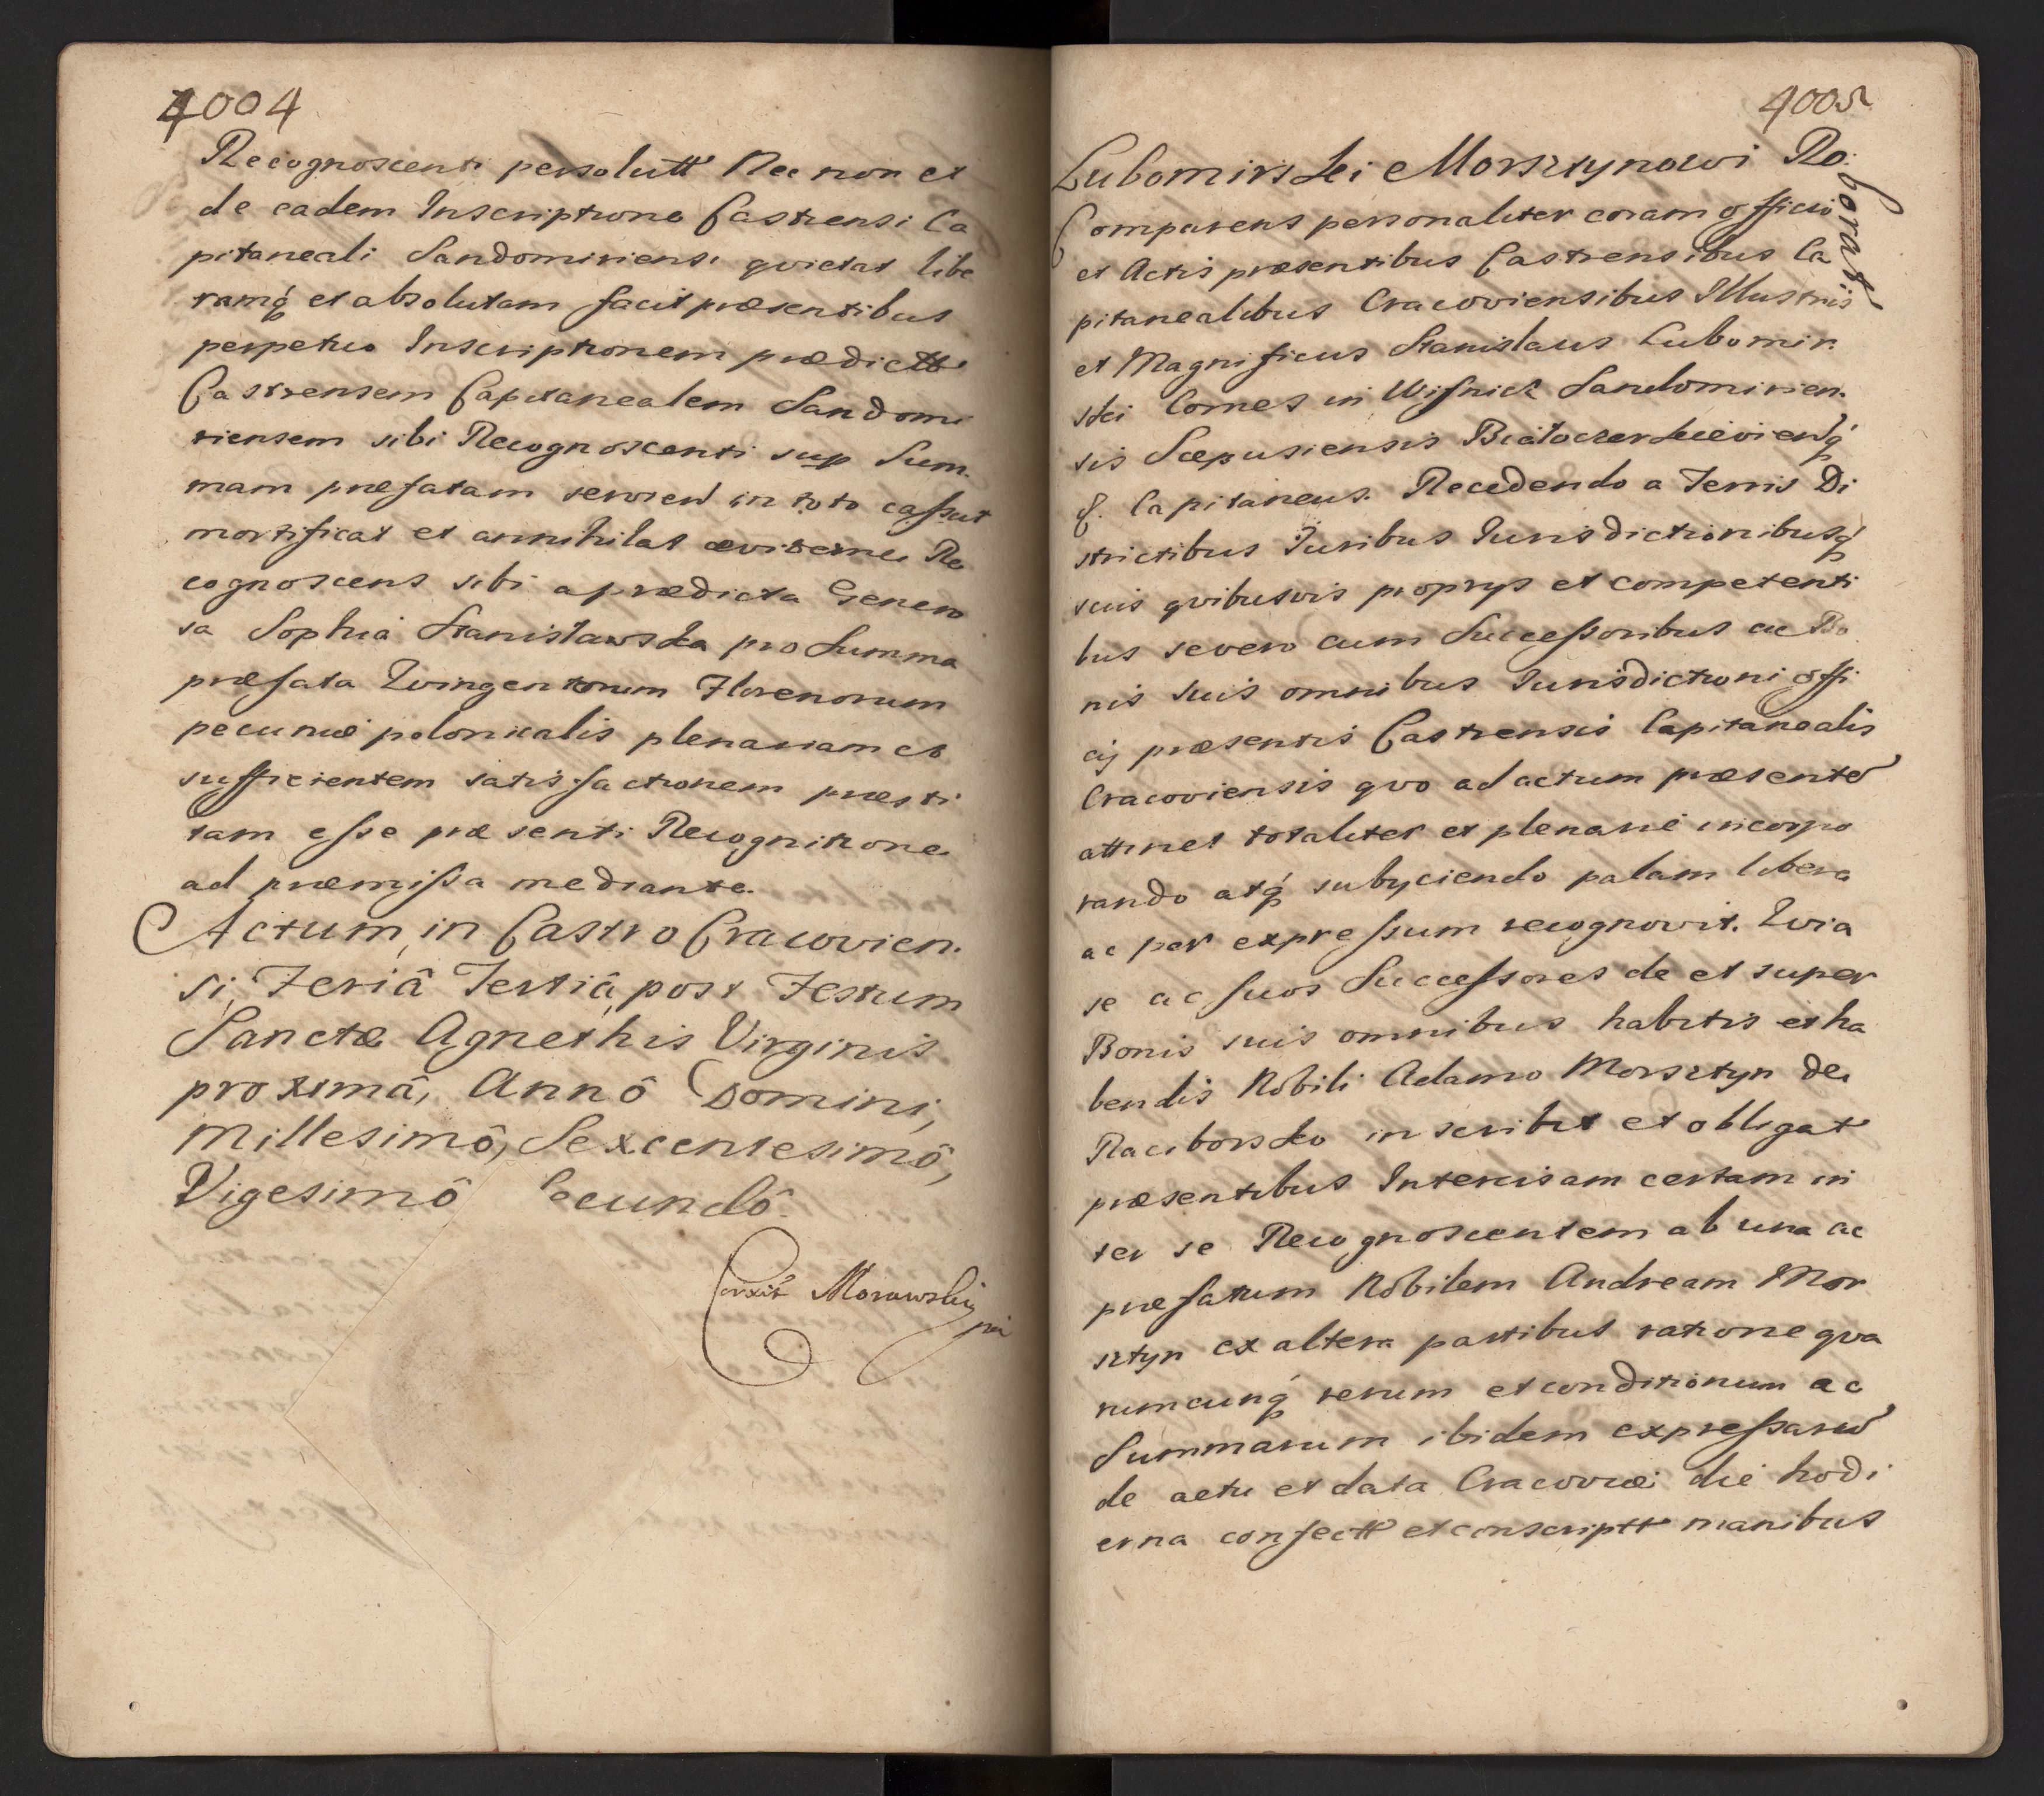 4004
Recognoscenti persolutt Nec non et
de eadem Inscriptione Castrensi Ca
pitaneali Sandomiriensi qvietat libe
ramq́ et absolutam facit præsentibus
perpetuo Inscriptionem prædictt
Castrensem Capitanealem Sandomi
riensem sibi Recognoscenti sup Sum.
mam præfatam servien in toto caſsat
mortificat et annihilat æviterne Re
cognoscens sibi a prædicta Genero
sa Sophia Stanisławska pro Summa
præfata Qvingentorum Florenorum
pecuniæ polonicalis plenariam et
sufficientem satisfactionem præsti
tam eſse præsenti Recognitione
ad præmiſsa mediante.
Actum, in Castro Cracovien.
si, Feriâ Tertiâ, post Festum
Sanctæ Agnethis Virginis
proximâ, Annô Domini,
Millesimô, Sexcentesimô,
Vigesimô Secundô.
Corrxit Morawski
4005
Lubomirskei Morsztynowi Ro.
borat
Comparens personaliter coram officio
et Actis præsentibus Castrensibus Ca
pitanealibus Cracoviensibus Illustris
et Magnificus Stanislaus Lubomir.
skei Comes in Wiſnicz Sandomirien.
sis Scepusiensis Białocerkieviensq́
&. Capitaneus. Recedendo a Terris Di
strictibus Iuribus Iurisdictionibusq́
suis qvibusvis proprys et competenti
bus severo cum Succeſsoribus ac Bo
nis suis omnibus Iurisdictioni offi
cij præsentis Castrensis Capitanealis
Cracoviensis qvo ad actum præsente
attinet totaliter et plenarie incorpo
rando atq́ subyciendo palam libera
ac per expreſsum recognovit. Qvia
se ac suos Succeſsores de et super
Bonis suis omnibus habitis et ha
bendis Nobili Adamo Morsztyn de
Raciborsko inscribit et obligat
præsentibus Intercisam certam in
ter se Recognoscentem ab una ac
præfatum Nobilem Andream Mor
sztyn ex altera partibus ratione qva
rumcunq́ rerum et conditionum ac
Summarum ibidem expreſsaru
de actu et data Cracoviæ die hodi
erna confectt et conscriptt manibus